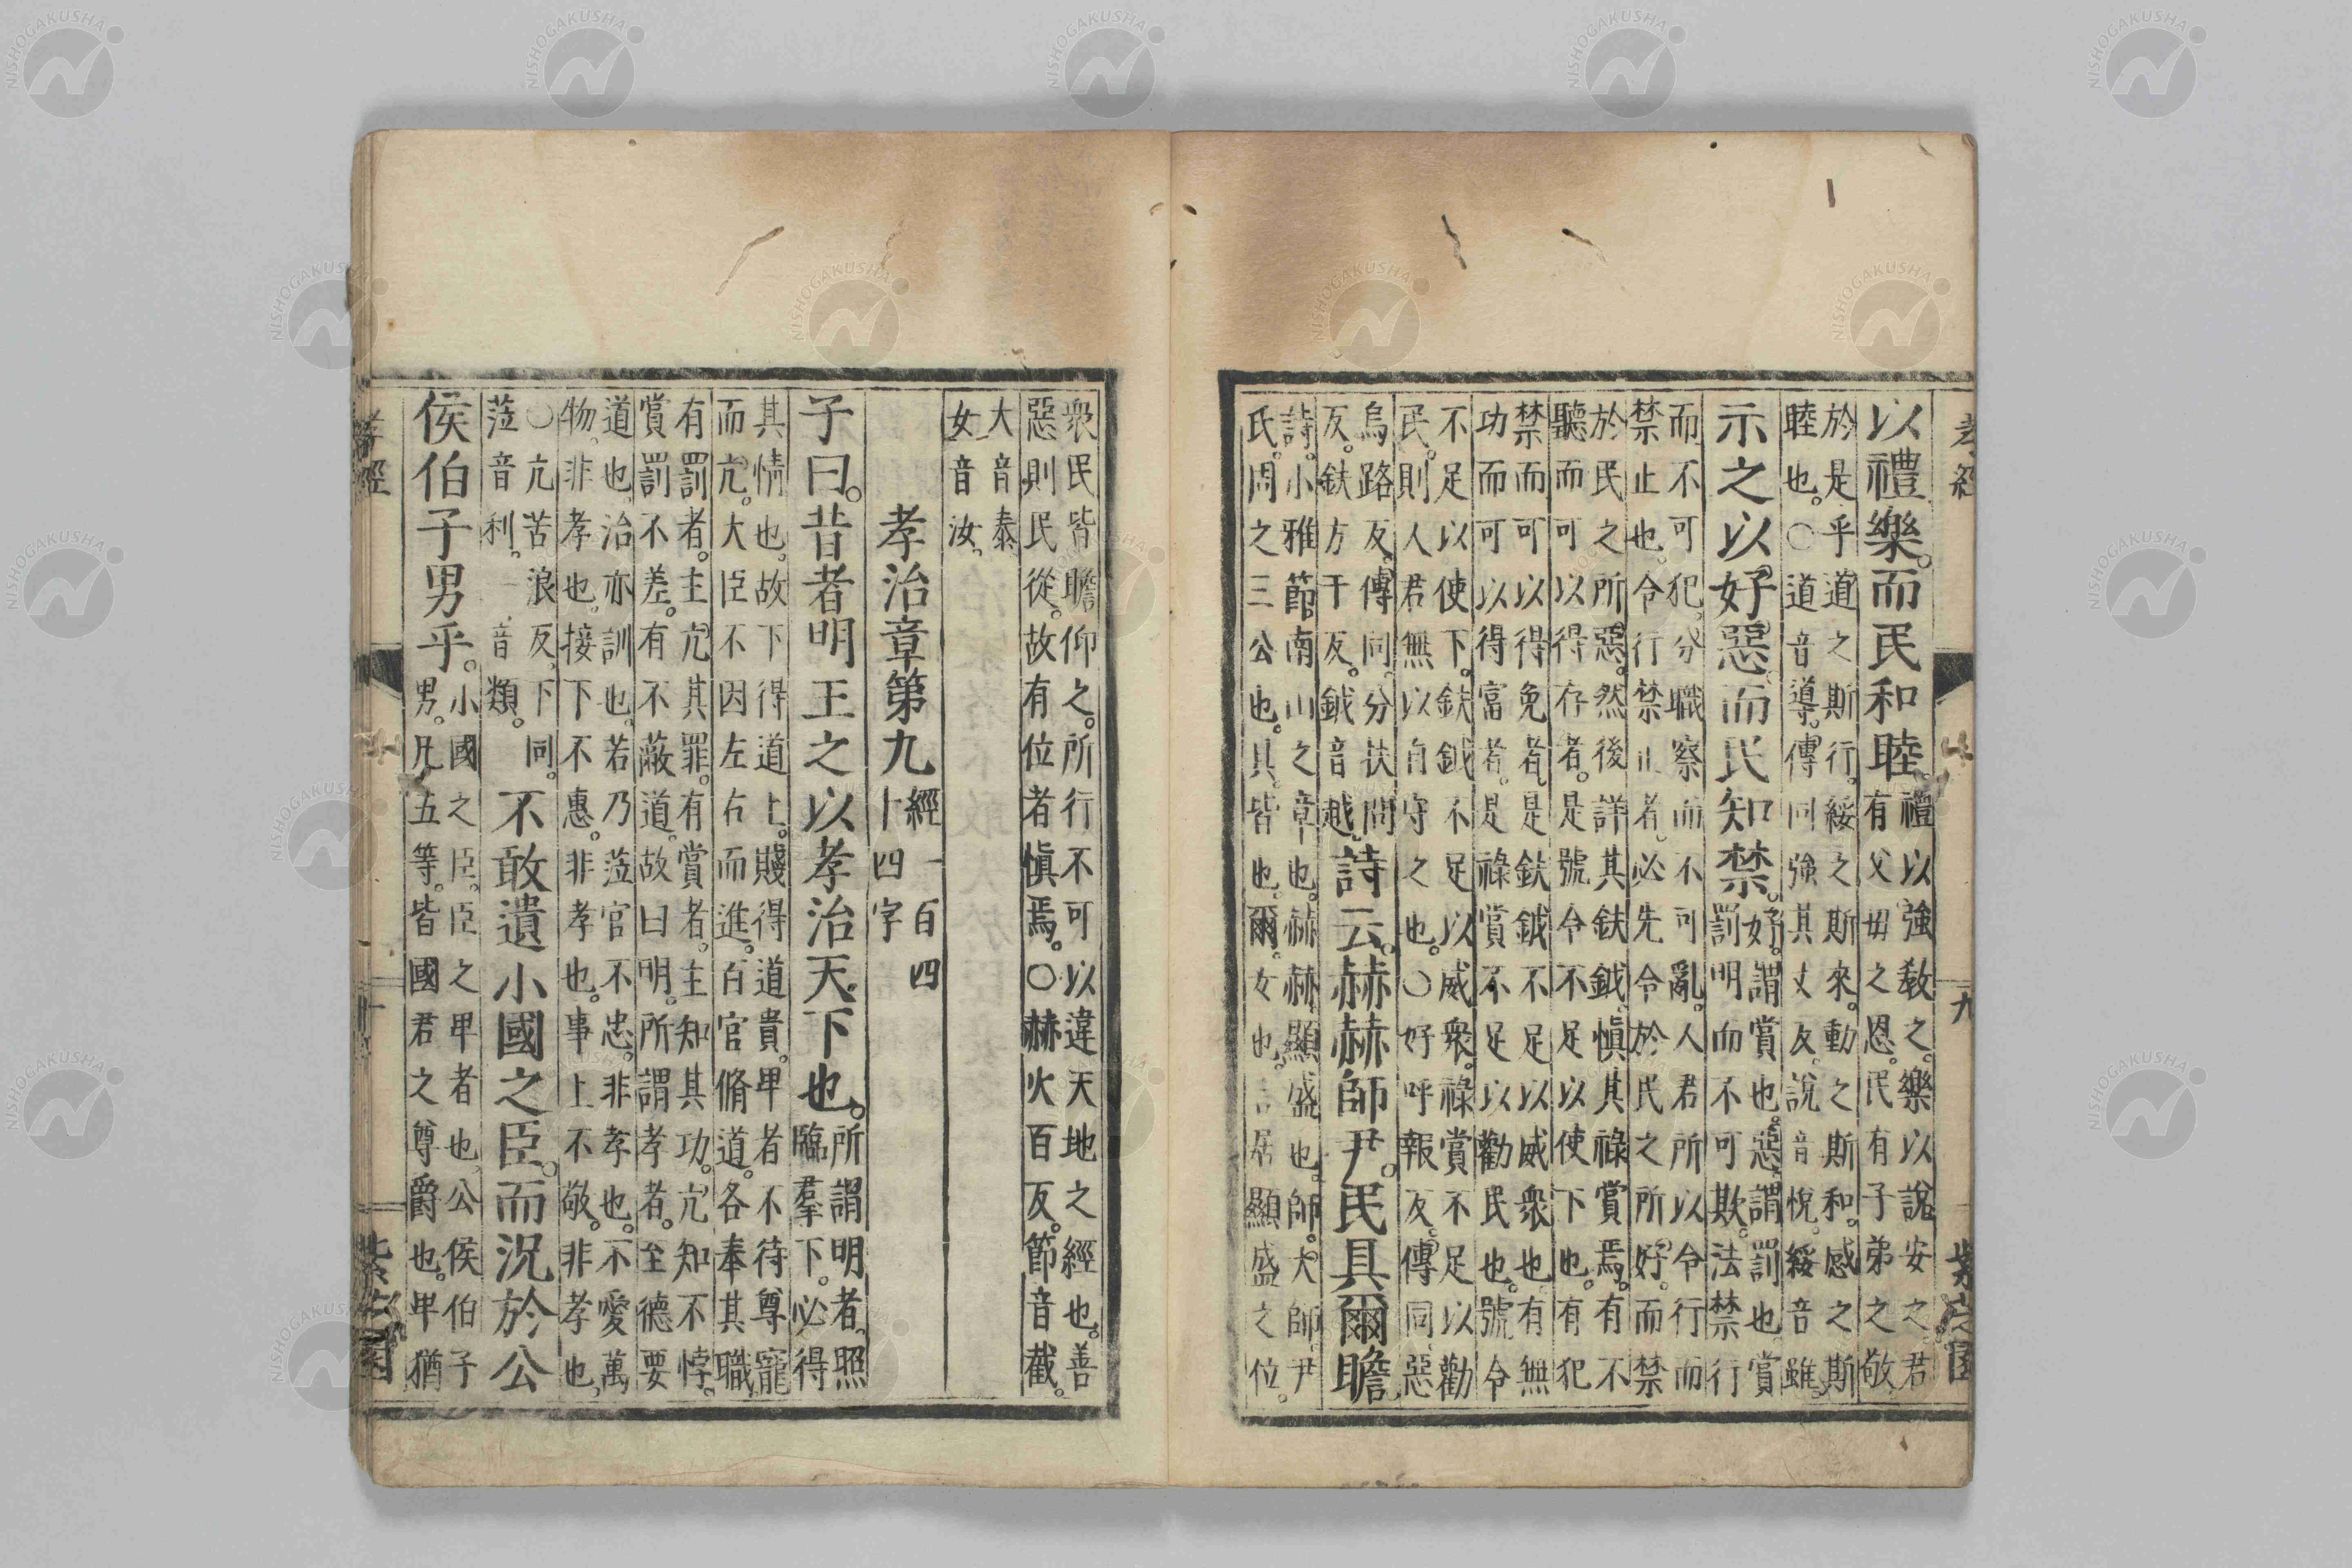 孝經 九 紫芝園
以禮樂。而民和睦。
禮以強教之。樂以說安之。君
有父毋之恩。民有子弟之敬
於是乎道之斯行。綏之斯來。動之斯和。感之斯
睦也。○道音導。傳同強其丈反。說音悅。綏音雖。
示之以好惡。而民知禁。
好。謂賞也。惡。謂罰也。賞
罰明而不可欺。法禁行
而不可犯。分職察而不可亂。人君所以令行而
禁止也。令行禁止者。必先令於民之所好。而禁
於民之所惡。然後詳其鈇鉞。愼其祿賞焉。有不
聽而可以得存者。是號令不足以使下也。有犯
禁而可以得免者。是鈇鉞不足以威衆也。有無
功而可以得富者。是祿賞不足以勸民也。號令
不足以使下。鈇鉞不足以威衆。祿賞不足以勸
民。則人君無以自守之也。○好呼報反。傳同。惡
烏路反。傳同。分扶問
反。鈇方于反。鉞音越。
詩云。赫赫師尹。民具爾瞻
詩。小雅節南山之章也。赫赫。顯盛也。師。大師。尹
氏。周之三公也。具。皆也。爾。女也。言居顯盛之位。
衆民皆瞻仰之。所行不可以違天地之經也。善
惡則民從。故有位者愼焉。○赫火百反。節音截。
大音泰
女音汝。
孝治章第九
經一百四
十四字
子曰。昔者明王之以孝治天下也。
所謂明者。照
臨羣下。必得
其情也。故下得道上。賤得道貴。卑者不待尊寵
而亢。大臣不因左右而進。百官脩道。各奉其職。
有罰者。主亢其罪。有賞者。主知其功。亢知不悖。
賞罰不差。有不蔽道。故曰明。所謂孝者。至德要
道也。治亦訓也。若乃蒞官不忠。非孝也。不愛萬
物。非孝也。接下不惠。非孝也。事上不敬。非孝也。
○亢苦浪反。下同。
蒞音利。一音類。
不敢遺小國之臣。而況於公
侯伯子男乎。
小國之臣。臣之卑者也。公侯伯子
男。凡五等。皆國君之尊爵也。卑猶
孝經 紫芝園
NISHOGAKUSHA